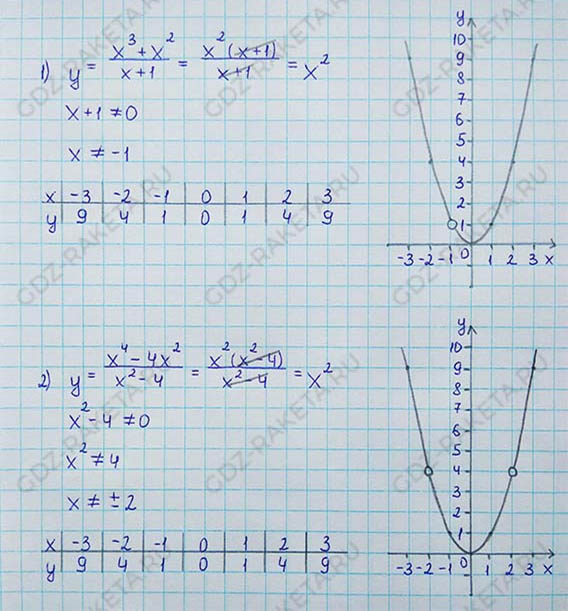 1) y = x³+x²/x+1 = x²(x+1)/x+1 = x²
x+1≠0
x≠-1
x -3 -2 -1 0 1 2 3
y 9 4 1 0 1 4 9
y
10
9
8
7
6
5
4
3
2
1
-3 -2 -1 0 1 2 3 x
2) y = x⁴-4x²/x²-4 = x²(x²-4)/x²-4 = x²
x²-4≠0
x²≠4
x≠±2
x -3 -2 -1 0 1 2 3
y 9 4 1 0 1 4 9
y
10
9
8
7
6
5
4
3
2
1
-3 -2 -1 0 1 2 3 x
GDZ-RAKETA.RU